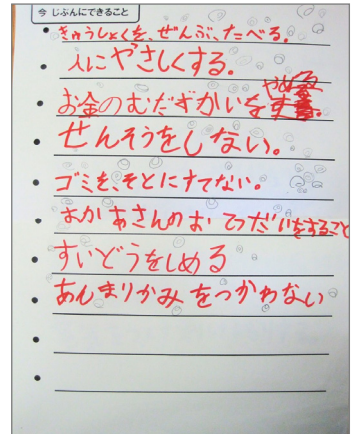 今 じぶんにできること
きゅうしょくを、ぜんぶ、たべる。
人にやさしくする。
お金のむだずかいをやめる。
せんそうをしない。
ゴミを、そとにすてない。
おかあさんのおてつだいをすること
すいどうをしめる
あんまりかみをつかわない